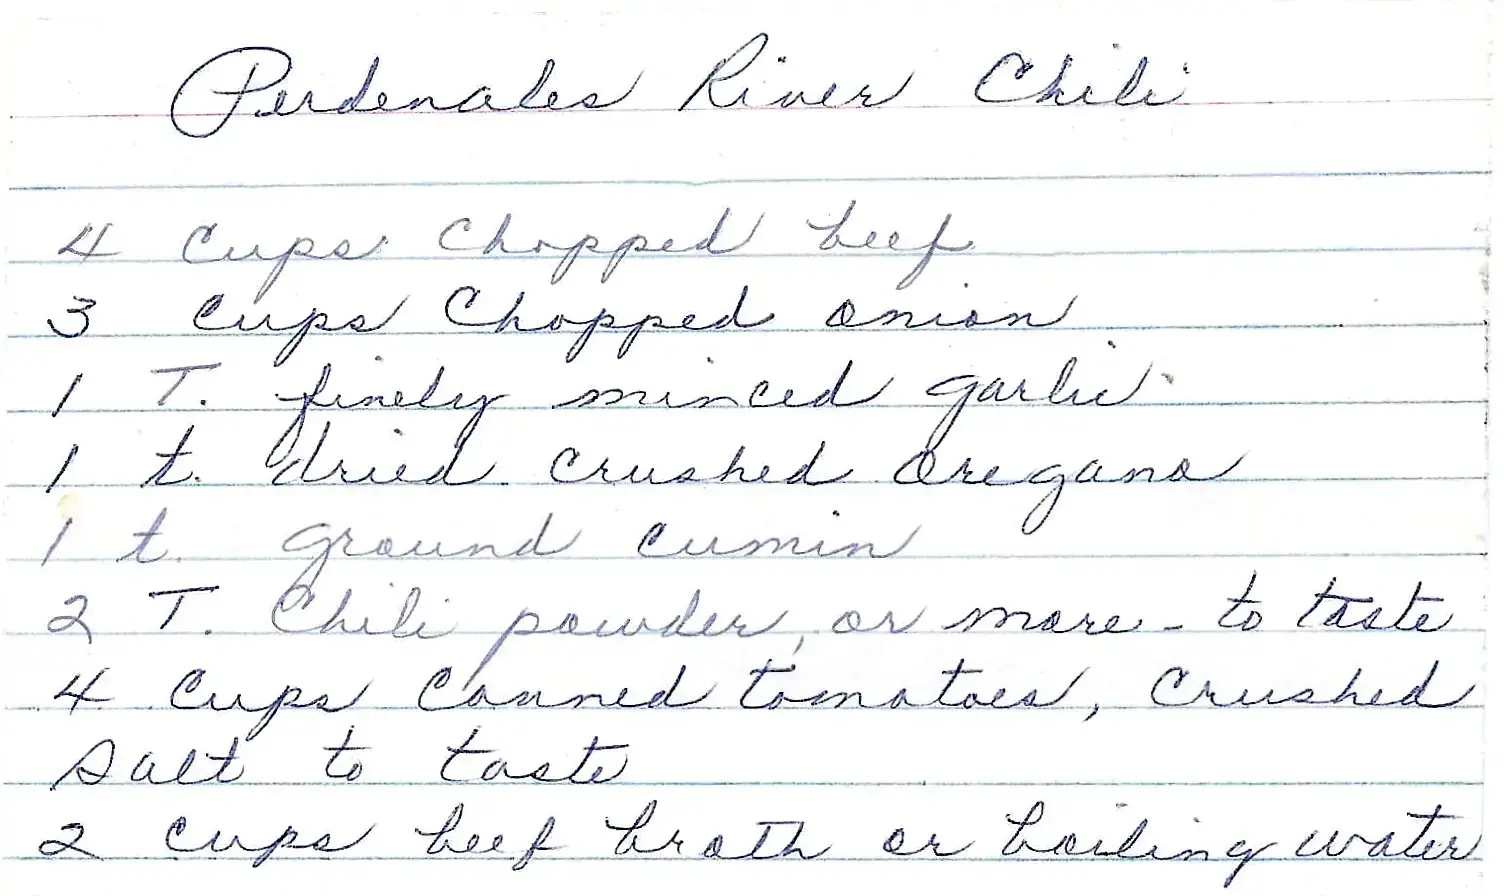 Perdenales River Chili
4 Cups Chopped beef
3 Cups Chopped onion
1 T. finely minced garlic
1 t. dried crushed oregano
1 t. ground cumin
2 T. Chili powder, or more - to taste
4 Cups Canned tomatoes, Crushed
Salt to taste
2 cups beef broth or boiling water